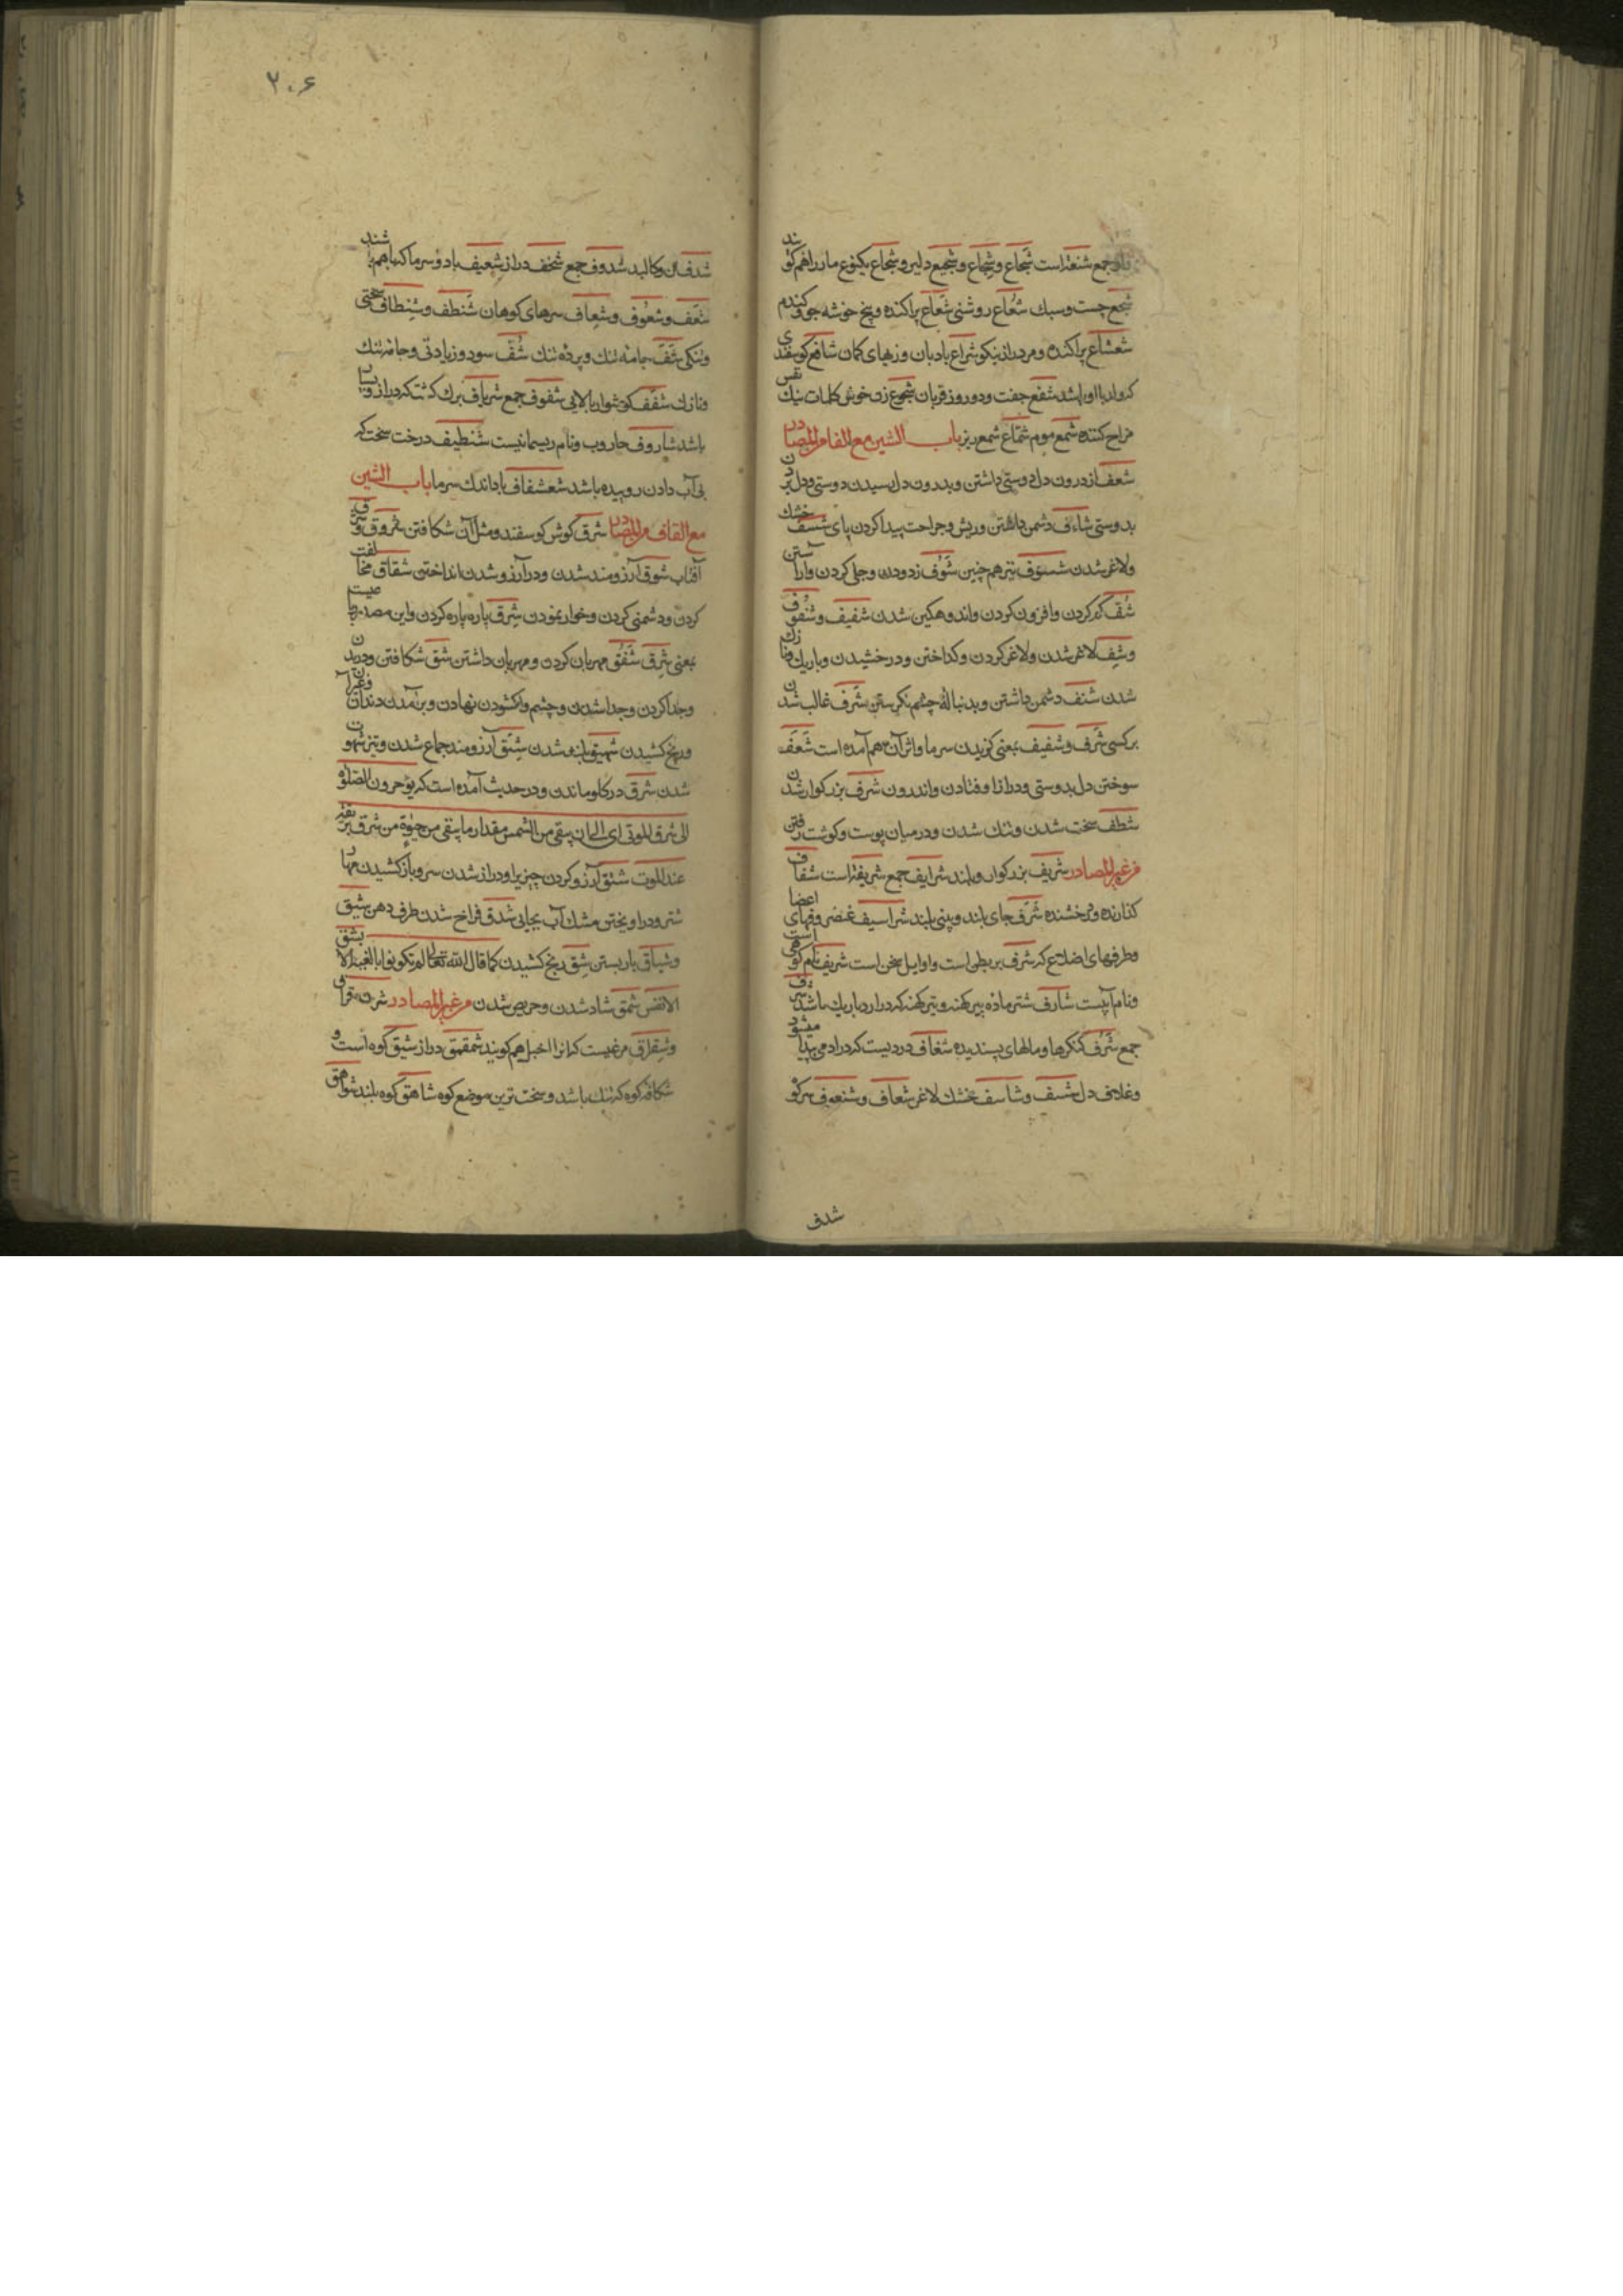 جمع شنعه است شَجاع وشِجاع وشجیع دلیر وشجاع یکنوع مار را هم کویند
شجع چست وسبك شُعاع روشنی شَعاع پراکنده و پنج خوشه جو وکندم
شعشاع پراکنده ومرد دراز نیکو شراع بادبان وزههای کمان شافع کوسفندی
که ولد با او باشد شفع جفت ودو روز قربان شموع زن خوش کلمات نیك نفس
مزاح کننده شمع موم شمّاع شمع ریز باب الشین مع الفا من المصادر
شعف از درون دل دوستی داشتن وبدرون دل رسیدن دوستی ودل بردن
بدوستی شاءف دشمن داشتن وریش وجراحت پیدا کردن پای شسف خشك
ولاغر شدن شسوف نیز هم چنین شوف زدودن وجلی کردن وآراستن
شف کم کردن وافزون کردن واندوهکین شدن شفیف وشفوف
وشف لاغر شدن ولاغر کردن وکداختن ودرخشیدن وباریك ونازك
شدن شنف دشمن داشتن وبدنباله چشم نکریستن شرف غالب شدن
بر کسی شرف وشفیف بمعنی کزیدن سرما واثر آن هم آمده است شعف
سوختن دل بدوستی ودراز اوفتادن واندرون شرف بزرکوار شدن
شظف سخت شدن وتنك شدن ودر میان پوست وکوشت رفتن
من غیر المصادر شریف بزرکوار وبلند شرایف جمع شریفه است شفاف
کذارنده ودرخشنده شرف جای بلند وبینی بلند شراسیف غضروفهای اعضا
وطرفهای اضلاع که شرف بر بطن است واوایل سخن است شریف نام کوهی است
ونام آبیست شارف شتر ماده پیر کهنه وتیر کهنه که دراز وباریك باشد شرف
جمع شُرَف کنکرها ومالهای پسندیده شغاف دردیست که در آدمی پیدا میشود
وغلاف دل شسف وشاسف خشك لاغر شعاف وشنعوف سر کو
شدف
۲۰۶
شدف تن وکالبد شدوف جمع شخف دراز شعیف باد وسرما که با هم باشند
شعف وشعوف وشعاف سرهای کوهان شنظف وشنظاف سختی
وتنکی شف جامه تنك وپرده تنك شف سود وزیادتی وجامه تنك
ونازك شفف کوشوار بالایی شفوف جمع شریاف برك کشت که دراز وبسیار
باشد شاروف جاروب ونام ریسمانیست شنظیف درخت سخت که
بی آب دادن روییده باشد شعشفاف باد اندك سرما باب الشین
مع القاف من المصادر شرق کوش کوسفند ومثل آن شکافتن شروق وشرق
آفتاب شوق آرزومند شدن ودر آرزو شدن انداختن شقاق مخالفت
کردن ودشمنی کردن وخوار نمودن شرق پاره پاره کردن واین مصدریست
بمعنی شرق شفق مهربان کردن ومهربان داشتن شق شکافتن ودریدن
وجدا کردن وجدا شدن وچشم واکشودن نهادن وبر آمدن دندان وغیر آن
ورنج کشیدن شهیق بلند شدن شبق آرزومند جماع شدن وتیز شهوت
شدن شرق در کلو ماندن ودر حدیث آمده است که یؤخرون الصلوة
الی شرق الموتی ای الی ان یبقی من الشمس مقدار ما یبقی من حیوة من شرق بریقه
عند الموت شنق آرزو کردن چیزی را ودراز شدن سر وباز کشیدن مهار
شتر ودر آویختن مشك آب بجایی شدق فراخ شدن طرف دهن شیق
وشیاق بار بستن شق رنج کشیدن کما قال الله تعالی لم تکونوا بالغیه الا بشق
الانفس شمق شاد شدن وحریص شدن من غیر المصادر شرقراق
وشقراق مرغیست که آنرا اخیل هم کویند شمقمق دراز شیق کوه است و
شکاف کوه که تنك باشد وسخت ترین موضع کوه شاهق کوه بلند شواهق